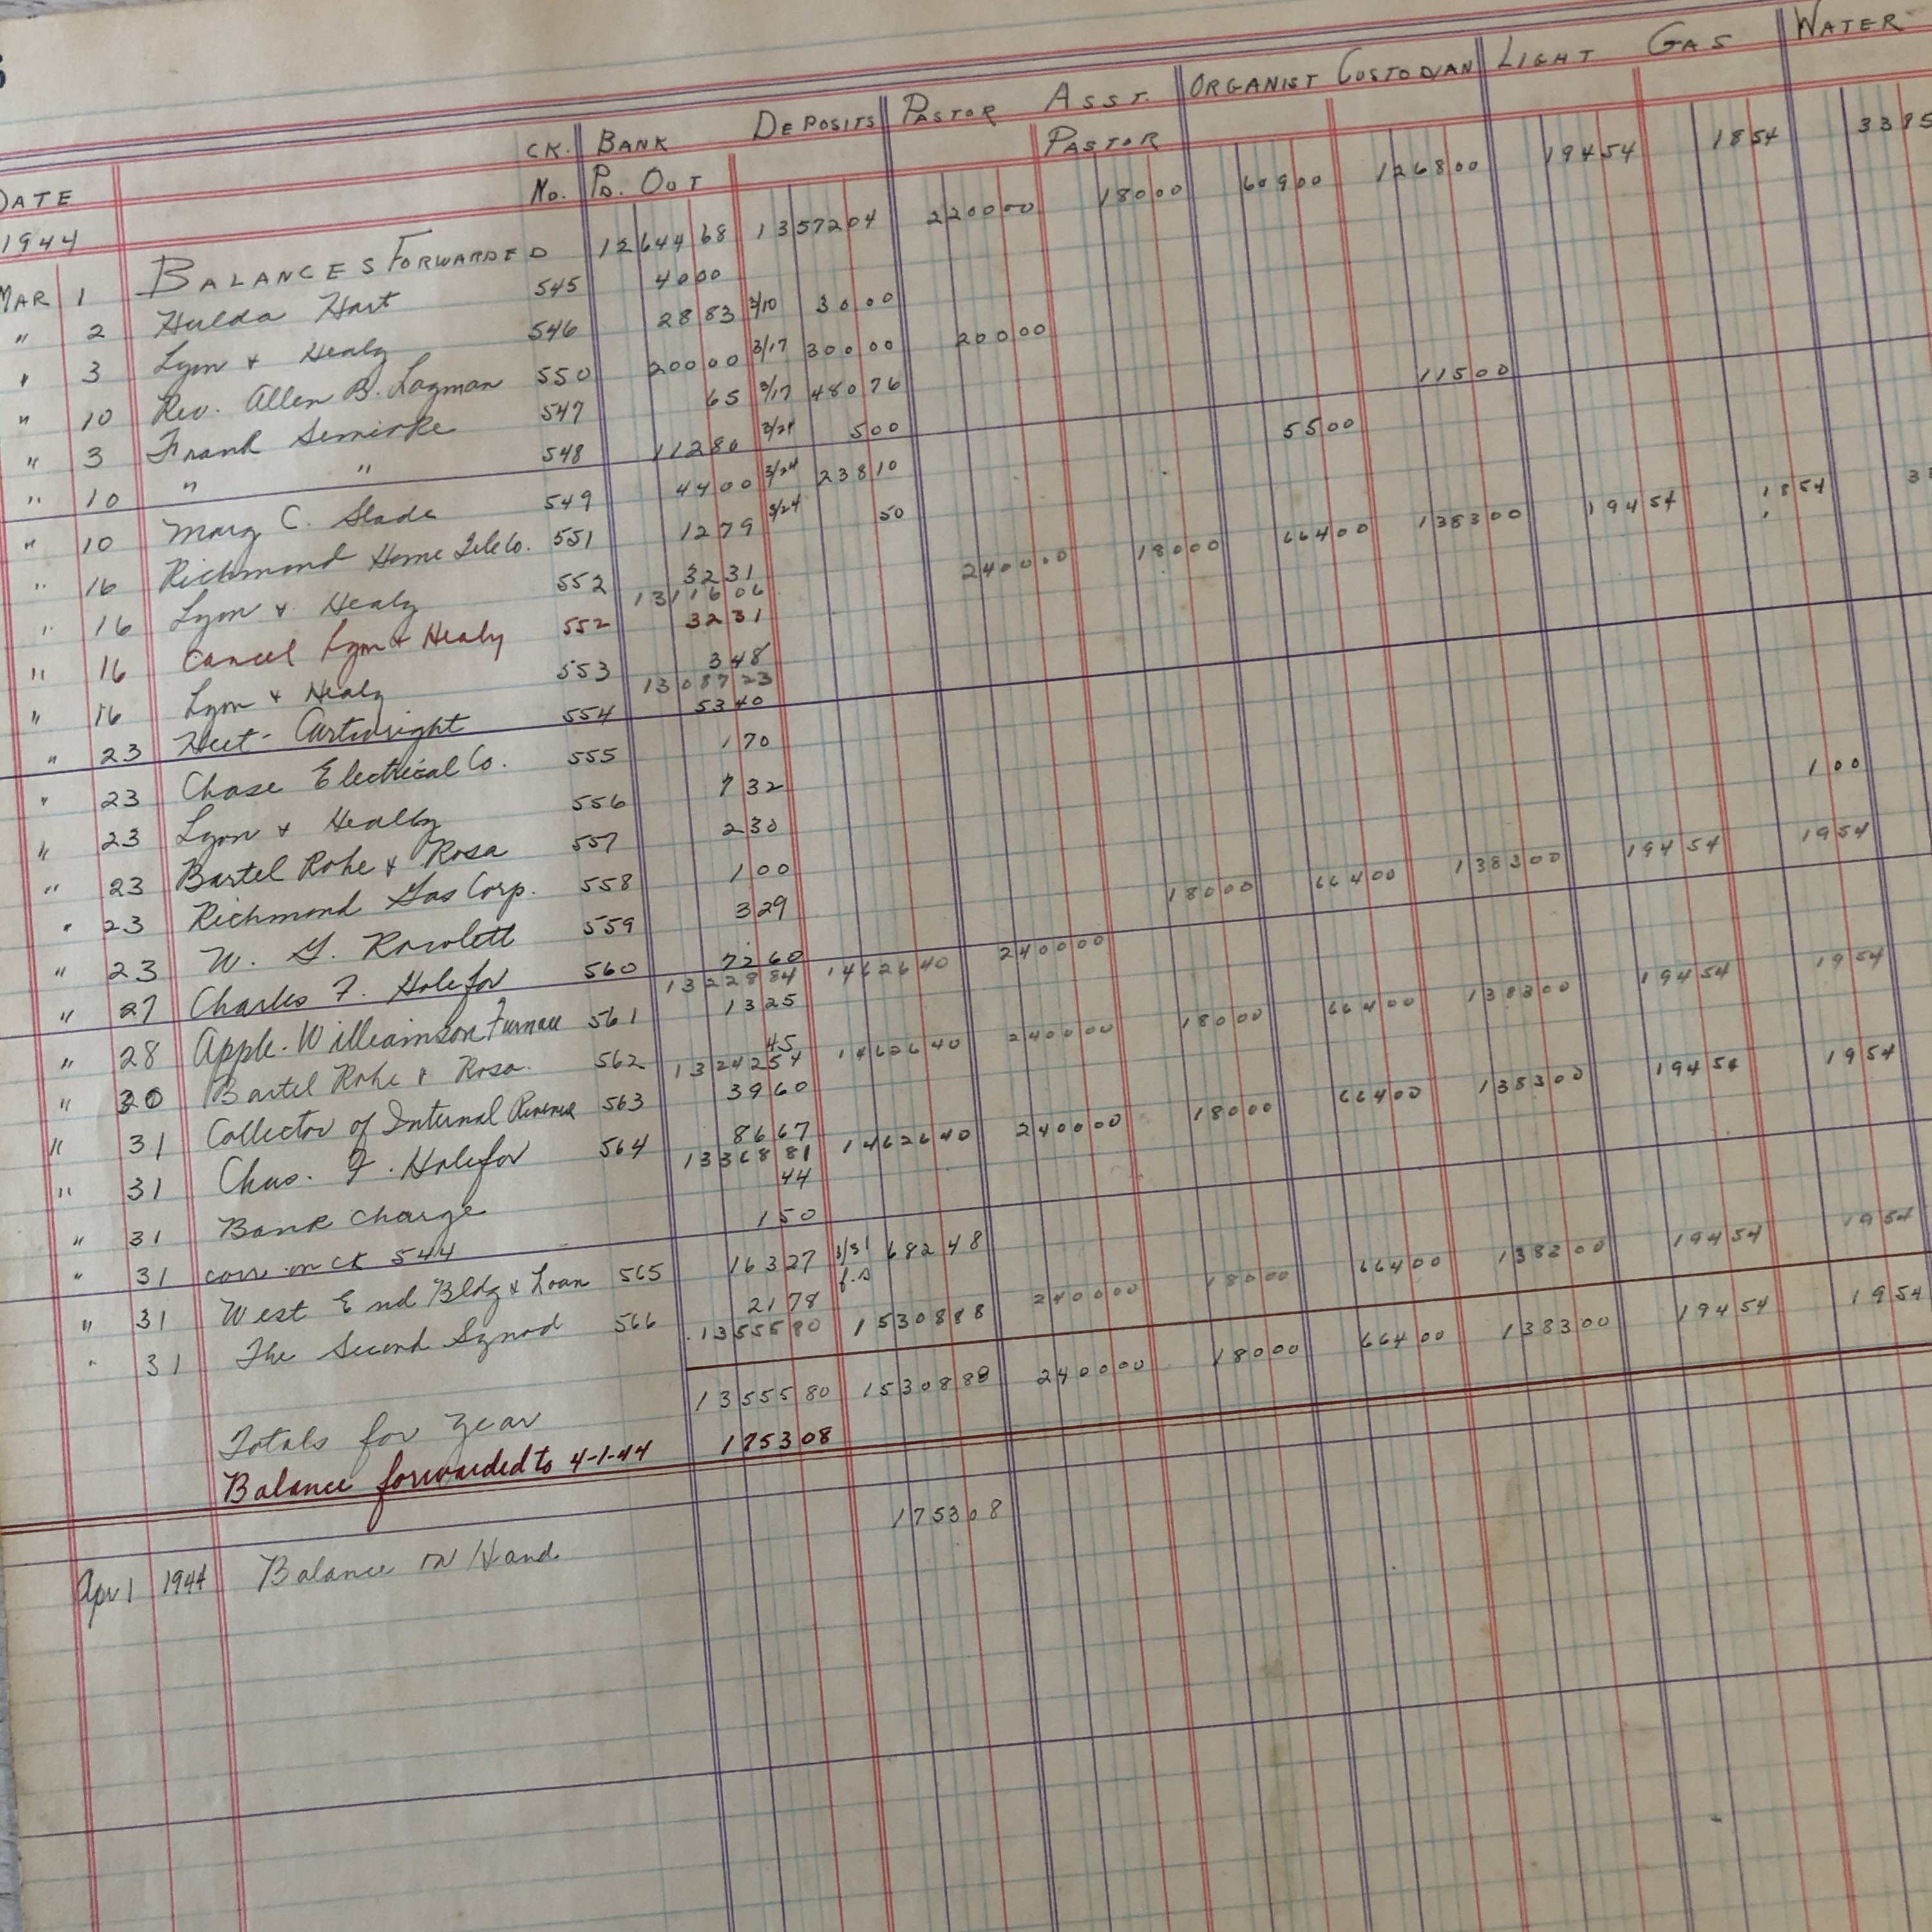 CK. BANK DEPOSITS PASTOR ASST. ORGANIST CUSTODIAN LIGHT GAS WATER
DATE No. PD. OUT PASTOR
1944
MAR 1 BALANCES FORWARDED 12644 68 13572 04 2200 00 180 00 609 00 1268 00 194 54 18 54 33 85
" 2 Hulda Hart 545 40 00
" 3 Lyon & Healy 546 28 83 3/10 30 00
" 10 Rev. Allen B. Lagman 550 200 00 3/17 300 00 200 00
" 3 Frank Semirke 547 65 3/17 480 76
" 10 " " 548 112 80 3/24 5 00 115 00
" 10 Marg C. Slade 549 44 00 3/24 238 10 55 00
" 16 Richmond Home Tele Co. 551 12 79 3/24 50
" 16 Lyon & Healy 552 32 31
13116 06 2400 00 180 00 664 00 1383 00 194 54 18 54
" 16 Cancel Lyon & Healy 552 32 31
" 16 Lyon & Healy 553 3 48
13087 23
" 23 Heet-Cartwright 554 53 40
" 23 Chase Electrical Co. 555 1 70
" 23 Lyon & Healby 556 7 32
" 23 Bartel Rohe & Rosa 557 2 30
" 23 Richmond Gas Corp. 558 1 00 1 00
" 23 W. G. Rowlett 559 3 29
" 27 Charles F. Holefor 560 72 60
13228 84 14626 40 2400 00 180 00 664 00 1383 00 194 54 19 54
" 28 Apple-Williamson Furnace 561 13 25
" 30 Bartel Rohe & Rosa. 562 45
13242 54 14626 40 2400 00 180 00 664 00 1383 00 194 54 19 54
" 31 Collector of Internal Revenue 563 39 60
" 31 Chas. F. Holefor 564 86 67
13368 81 14626 40 2400 00 180 00 664 00 1383 00 194 54 19 54
" 31 Bank Charge 44
" 31 corr on ck 544 1 50
" 31 West End Bldg & Loan 565 163 27 3/31 682 48
" 31 The Second Synod 566 21 78
13555 80 15308 88 2400 00 180 00 664 00 1383 00 194 54 19 54
Totals for year 13555 80 15308 88 2400 00 180 00 664 00 1383 00 194 54 19 54
Balance forwarded to 4-1-44 1753 08
Apr 1 1944 Balance on Hand 1753 08